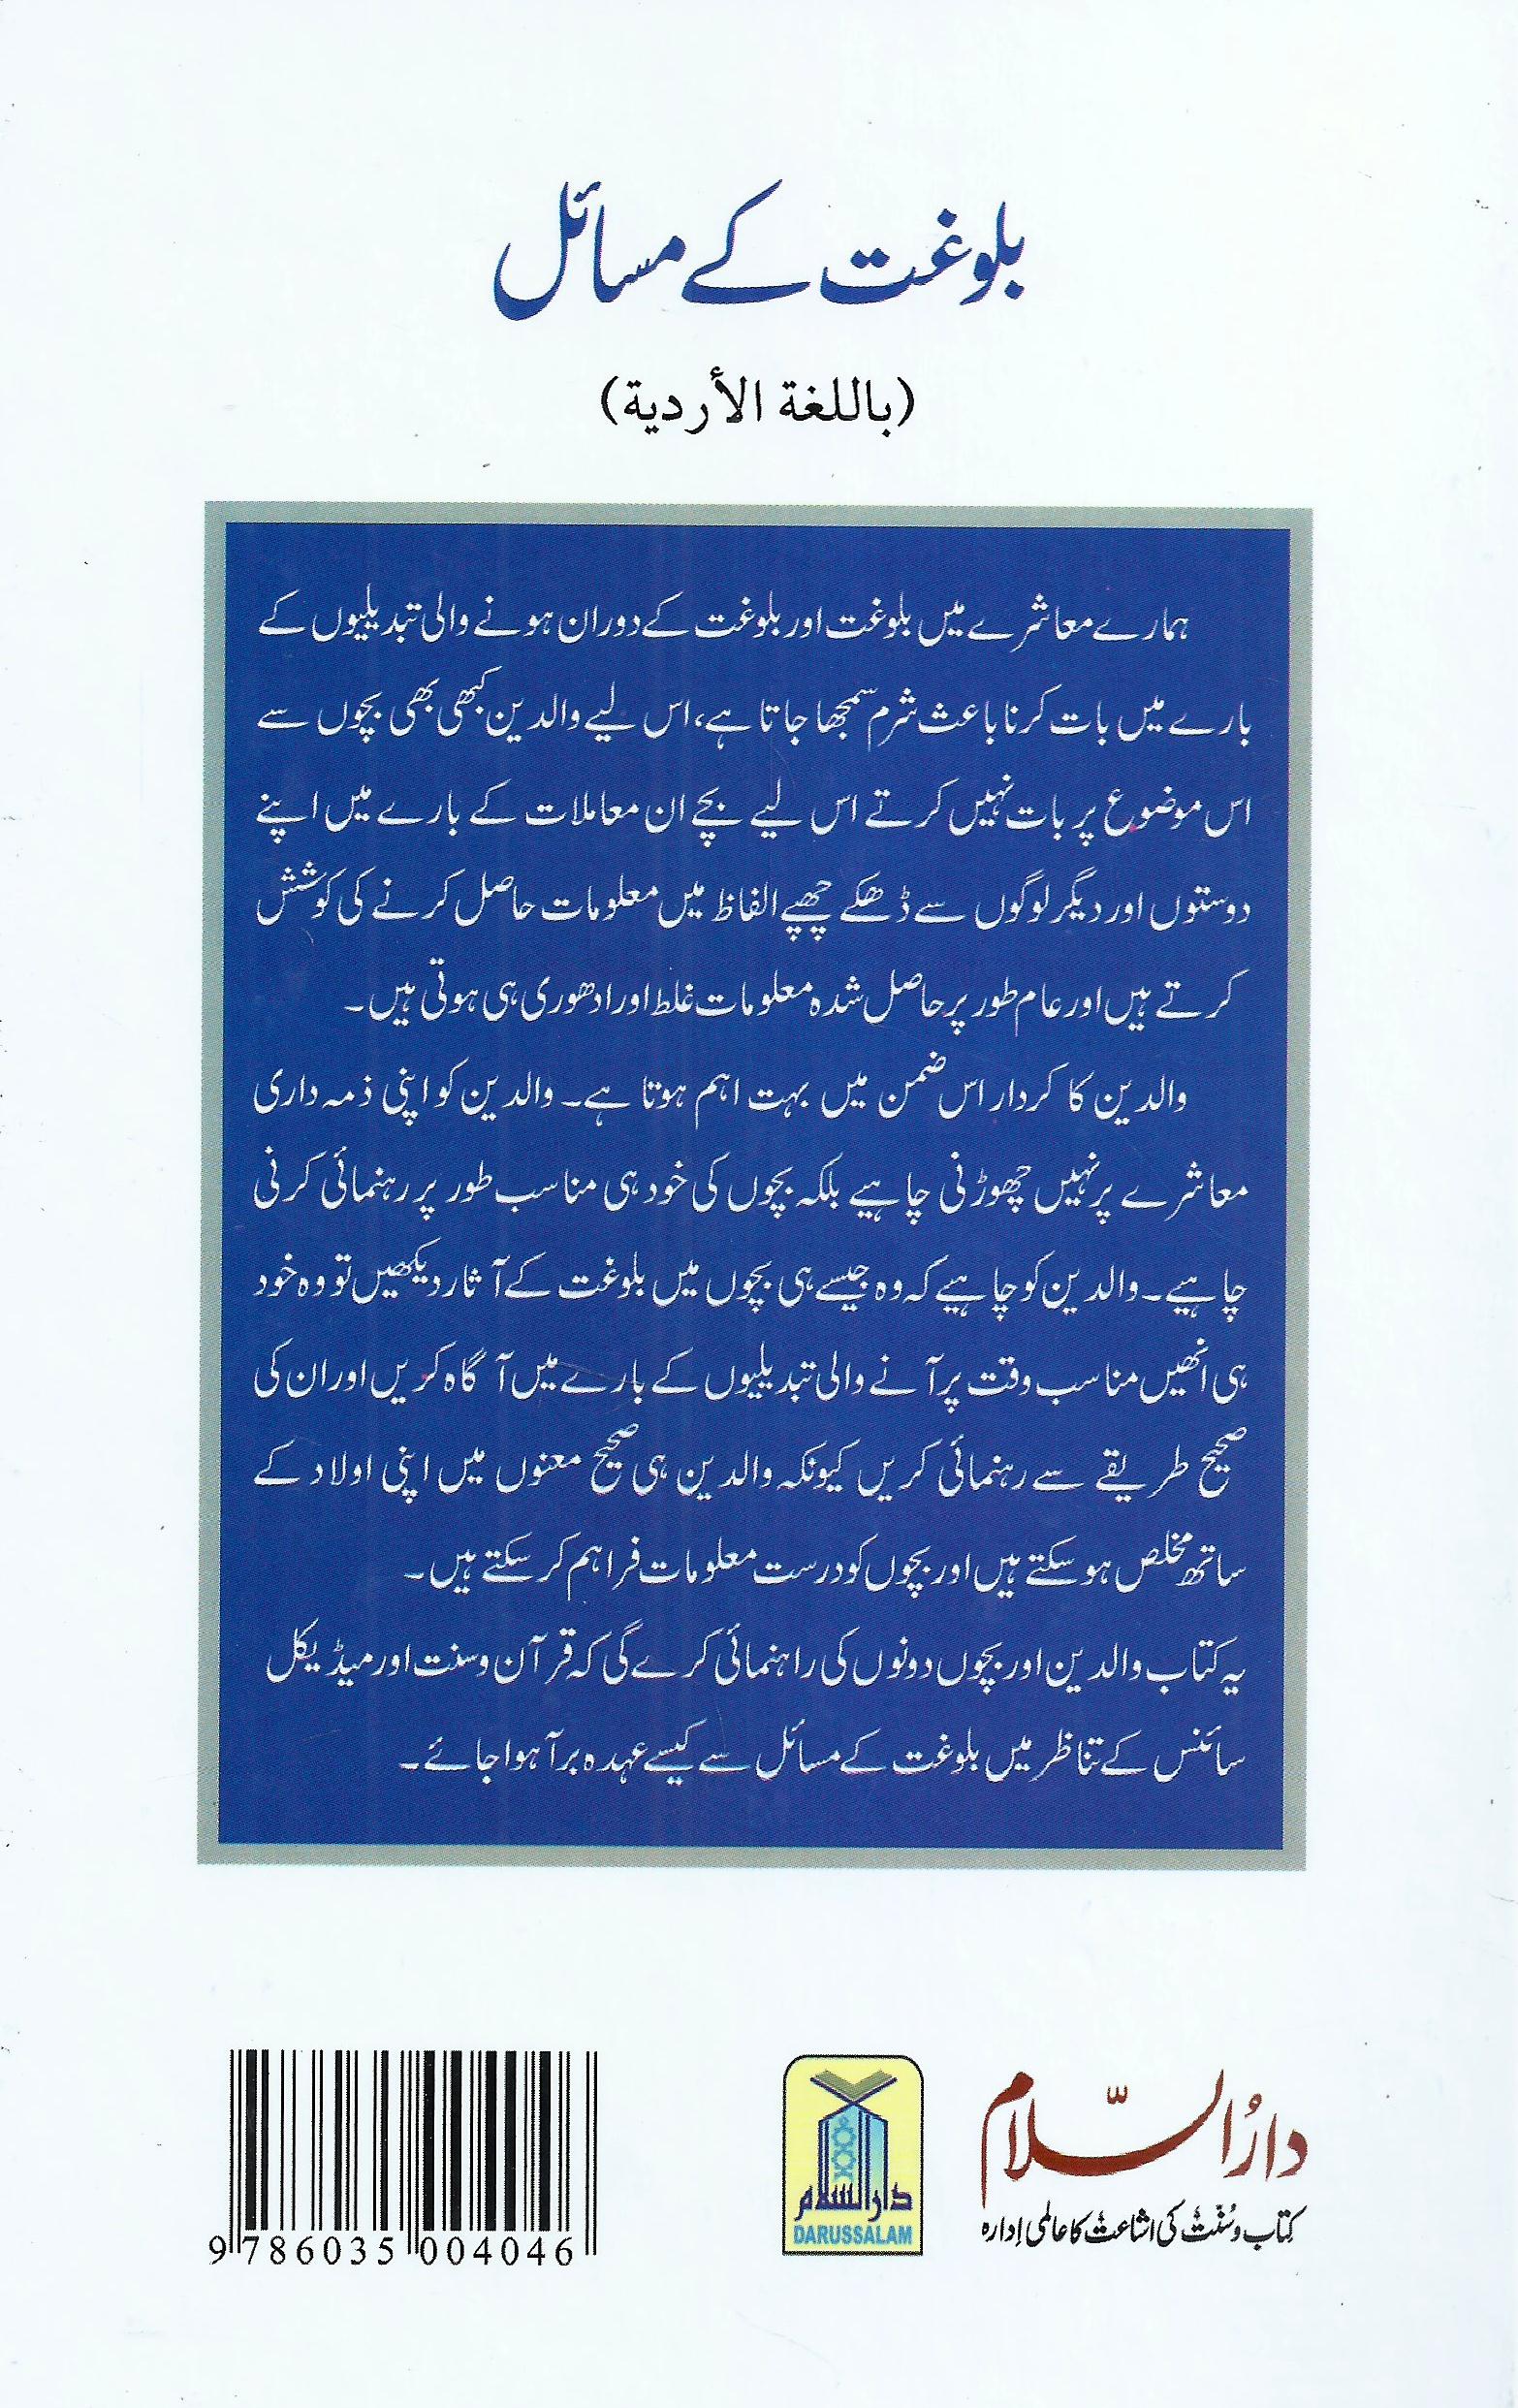 بلوغت کے مسائل
(باللغة الأردية)
ہمارے معاشرے میں بلوغت اور بلوغت کے دوران ہونے والی تبدیلیوں کے
بارے میں بات کرنا باعث شرم سمجھا جاتا ہے، اس لیے والدین کبھی بھی بچوں سے
اس موضوع پر بات نہیں کرتے اس لیے بچے ان معاملات کے بارے میں اپنے
دوستوں اور دیگر لوگوں سے ڈھکے چھپے الفاظ میں معلومات حاصل کرنے کی کوشش
کرتے ہیں اور عام طور پر حاصل شدہ معلومات غلط اور ادھوری ہی ہوتی ہیں۔
والدین کا کردار اس ضمن میں بہت اہم ہوتا ہے۔ والدین کو اپنی ذمہ داری
معاشرے پر نہیں چھوڑنی چاہیے بلکہ بچوں کی خود ہی مناسب طور پر رہنمائی کرنی
چاہیے۔ والدین کو چاہیے کہ وہ جیسے ہی بچوں میں بلوغت کے آثار دیکھیں تو وہ خود
ہی انھیں مناسب وقت پر آنے والی تبدیلیوں کے بارے میں آگاہ کریں اور ان کی
صحیح طریقے سے رہنمائی کریں کیونکہ والدین ہی صحیح معنوں میں اپنی اولاد کے
ساتھ مخلص ہوسکتے ہیں اور بچوں کو درست معلومات فراہم کرسکتے ہیں۔
یہ کتاب والدین اور بچوں دونوں کی راہنمائی کرے گی کہ قرآن و سنت اور میڈیکل
سائنس کے تناظر میں بلوغت کے مسائل سے کیسے عہدہ برآ ہوا جائے۔
دارُالسّلام
کتاب و سُنّت کی اشاعت کا عالمی اِدارہ
دارالسلام
DARUSSALAM
9 786035 004046